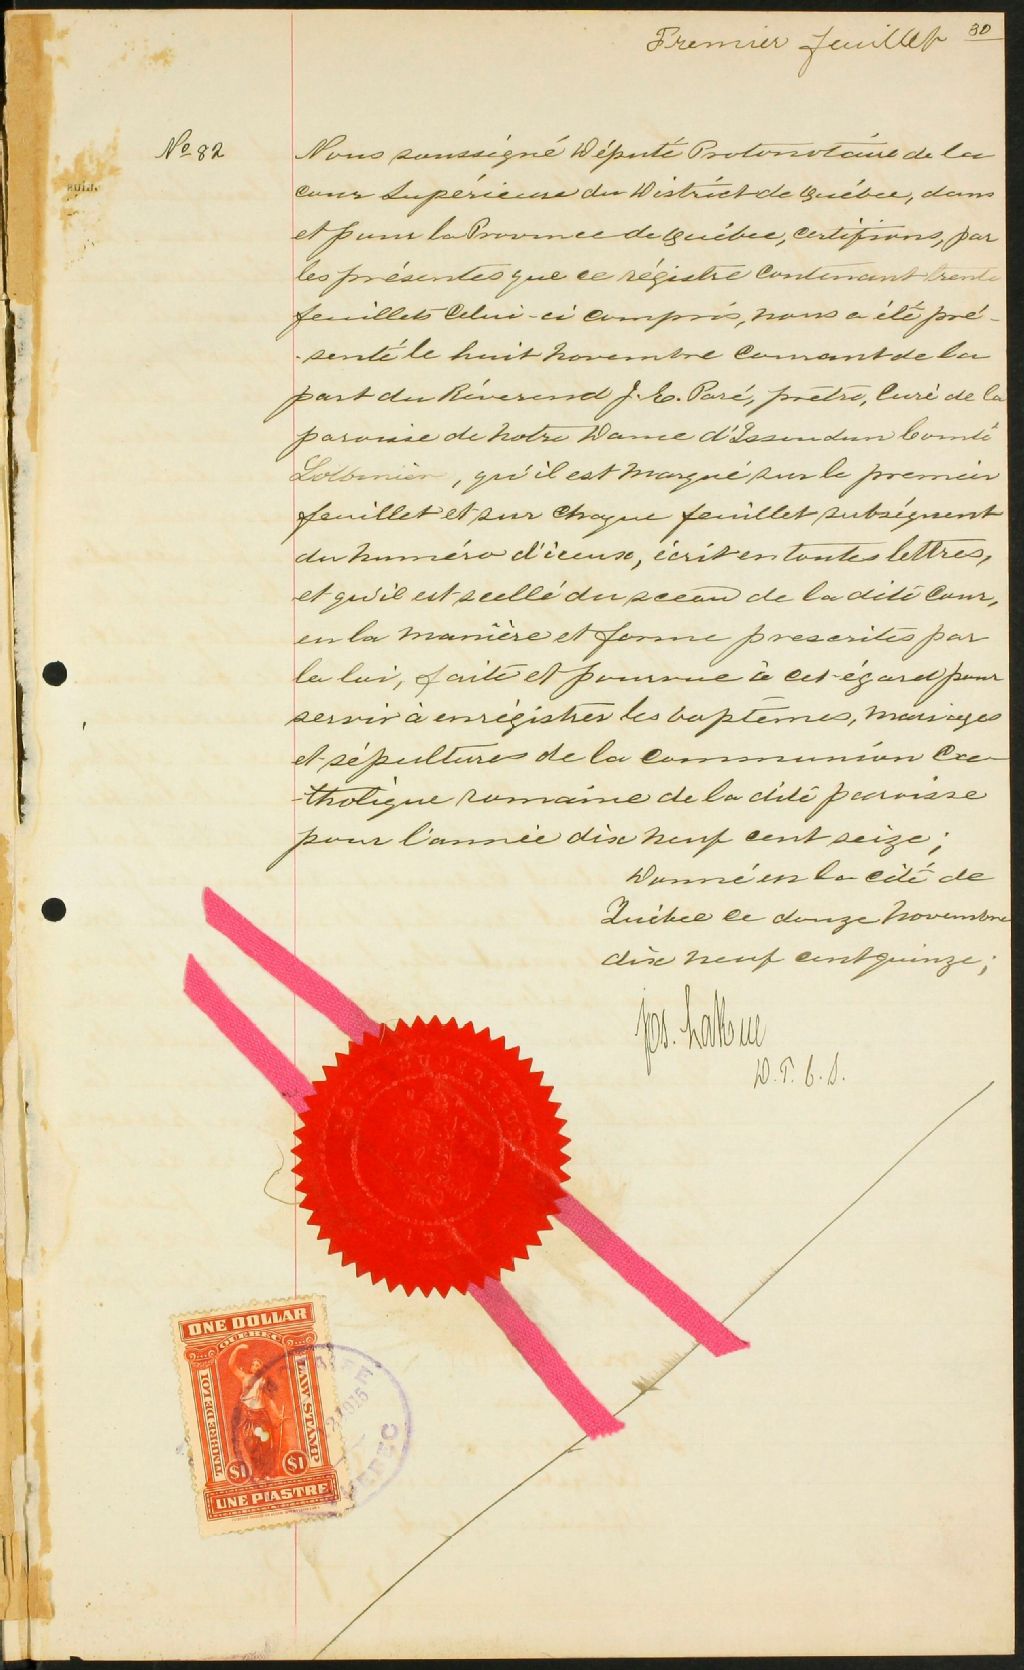 Premier feuillet 30
No 82
Nous soussigné Député Protonotaire de la
cour Supérieure du District de Québec, dans
et pour la Province de Québec, certifions, par
les présentes que ce régistre contenant trente
feuillets celui-ci compris, nous a été pré-
-senté le huit novembre courant de la
part du Révérend J. E. Paré, prêtre, Curé de la
paroisse de Notre Dame d'Issoudun Comté
Lotbinière, qu'il est marqué sur le premier
feuillet et sur chaque feuillet subséquent
du numéro d'iceux, écrit en toutes lettres,
et qu'il est scellé du sceau de la dite Cour,
en la manière et forme prescrites par
la loi, faite et pourvue à cet égard pour
servir à enrégistrer les baptêmes, mariages
et sépultures de la communion Ca-
-tholique romaine de la dite paroisse
pour l'année dix neuf cent seize;
Donné en la cité de
Québec ce douze novembre
dix neuf cent quinze;
Jos. LaRue
D. P. C. S.
ONE DOLLAR
QUEBEC
TIMBRE DE LOI
LAW STAMP
$1 $1
UNE PIASTRE